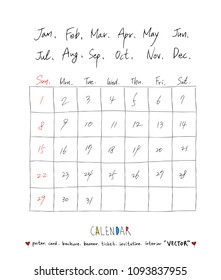 Jan. Feb. Mar. Apr. May Jun.
Jul. Aug. Sep. Oct. Nov. Dec.
Sun. Mon. Tue. Wed. Thu. Fri. Sat.
1 2 3 4 5 6 7
8 9 10 11 12 13 14
15 16 17 18 19 20 21
22 23 24 25 26 27 28
29 30 31
CALENDAR
poster, card, brochure, banner, ticket, invitation, interior "VECTOR"
shutterstock.com · 1093837955